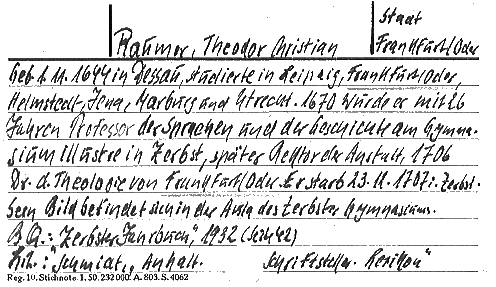 Staat
Raumer, Theodor Christian Frankfurt/Oder
Geb. 1.11.1644 in Dessau, studierte in Leipzig, Frankfurt/Oder,
Helmstedt, Jena, Marburg und Utrecht. 1670 wurde er mit 26
Jahren Professor der Sprachen und der Geschichte am Gymna-
sium Illustre in Zerbst, später Rektor der Anstalt, 1706
Dr. d. Theologie von Frankfurt/Oder. Er starb 23.11.1707 i. Zerbst.
Sein Bild befindet sich in der Aula des Zerbster Gymnasiums.
B.Q.: "Zerbster Jahrbuch", 1932 (Seite 42)
Lit.: "Schmidt, Anhalt. Schriftsteller-Lexikon"
Reg. 10. Stichnote. I. 50. 232 000. A. 803. S. 4062